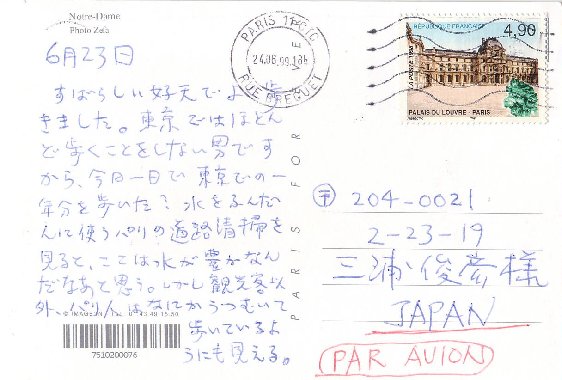 Notre-Dame
Photo Zefa
6月23日
すばらしい好天でよく歩
きました。東京ではほとん
ど歩くことをしない男です
から、今日一日で東京での一
年分を歩いた? 水をふんだ
んに使うパリの道路清掃を
見ると、ここは水が豊かなん
だなあと思う。しかし観光客以
外、パリ人はなにかうつむいて
歩いているよ
うにも見える。
7510200076
PARIS FOR
PARIS
24.06.99
RUE BREGUET
RÉPUBLIQUE FRANÇAISE
4,90
LA POSTE
PALAIS DU LOUVRE - PARIS
〒 204-0021
2-23-19
三浦俊彦様
JAPAN
PAR AVION